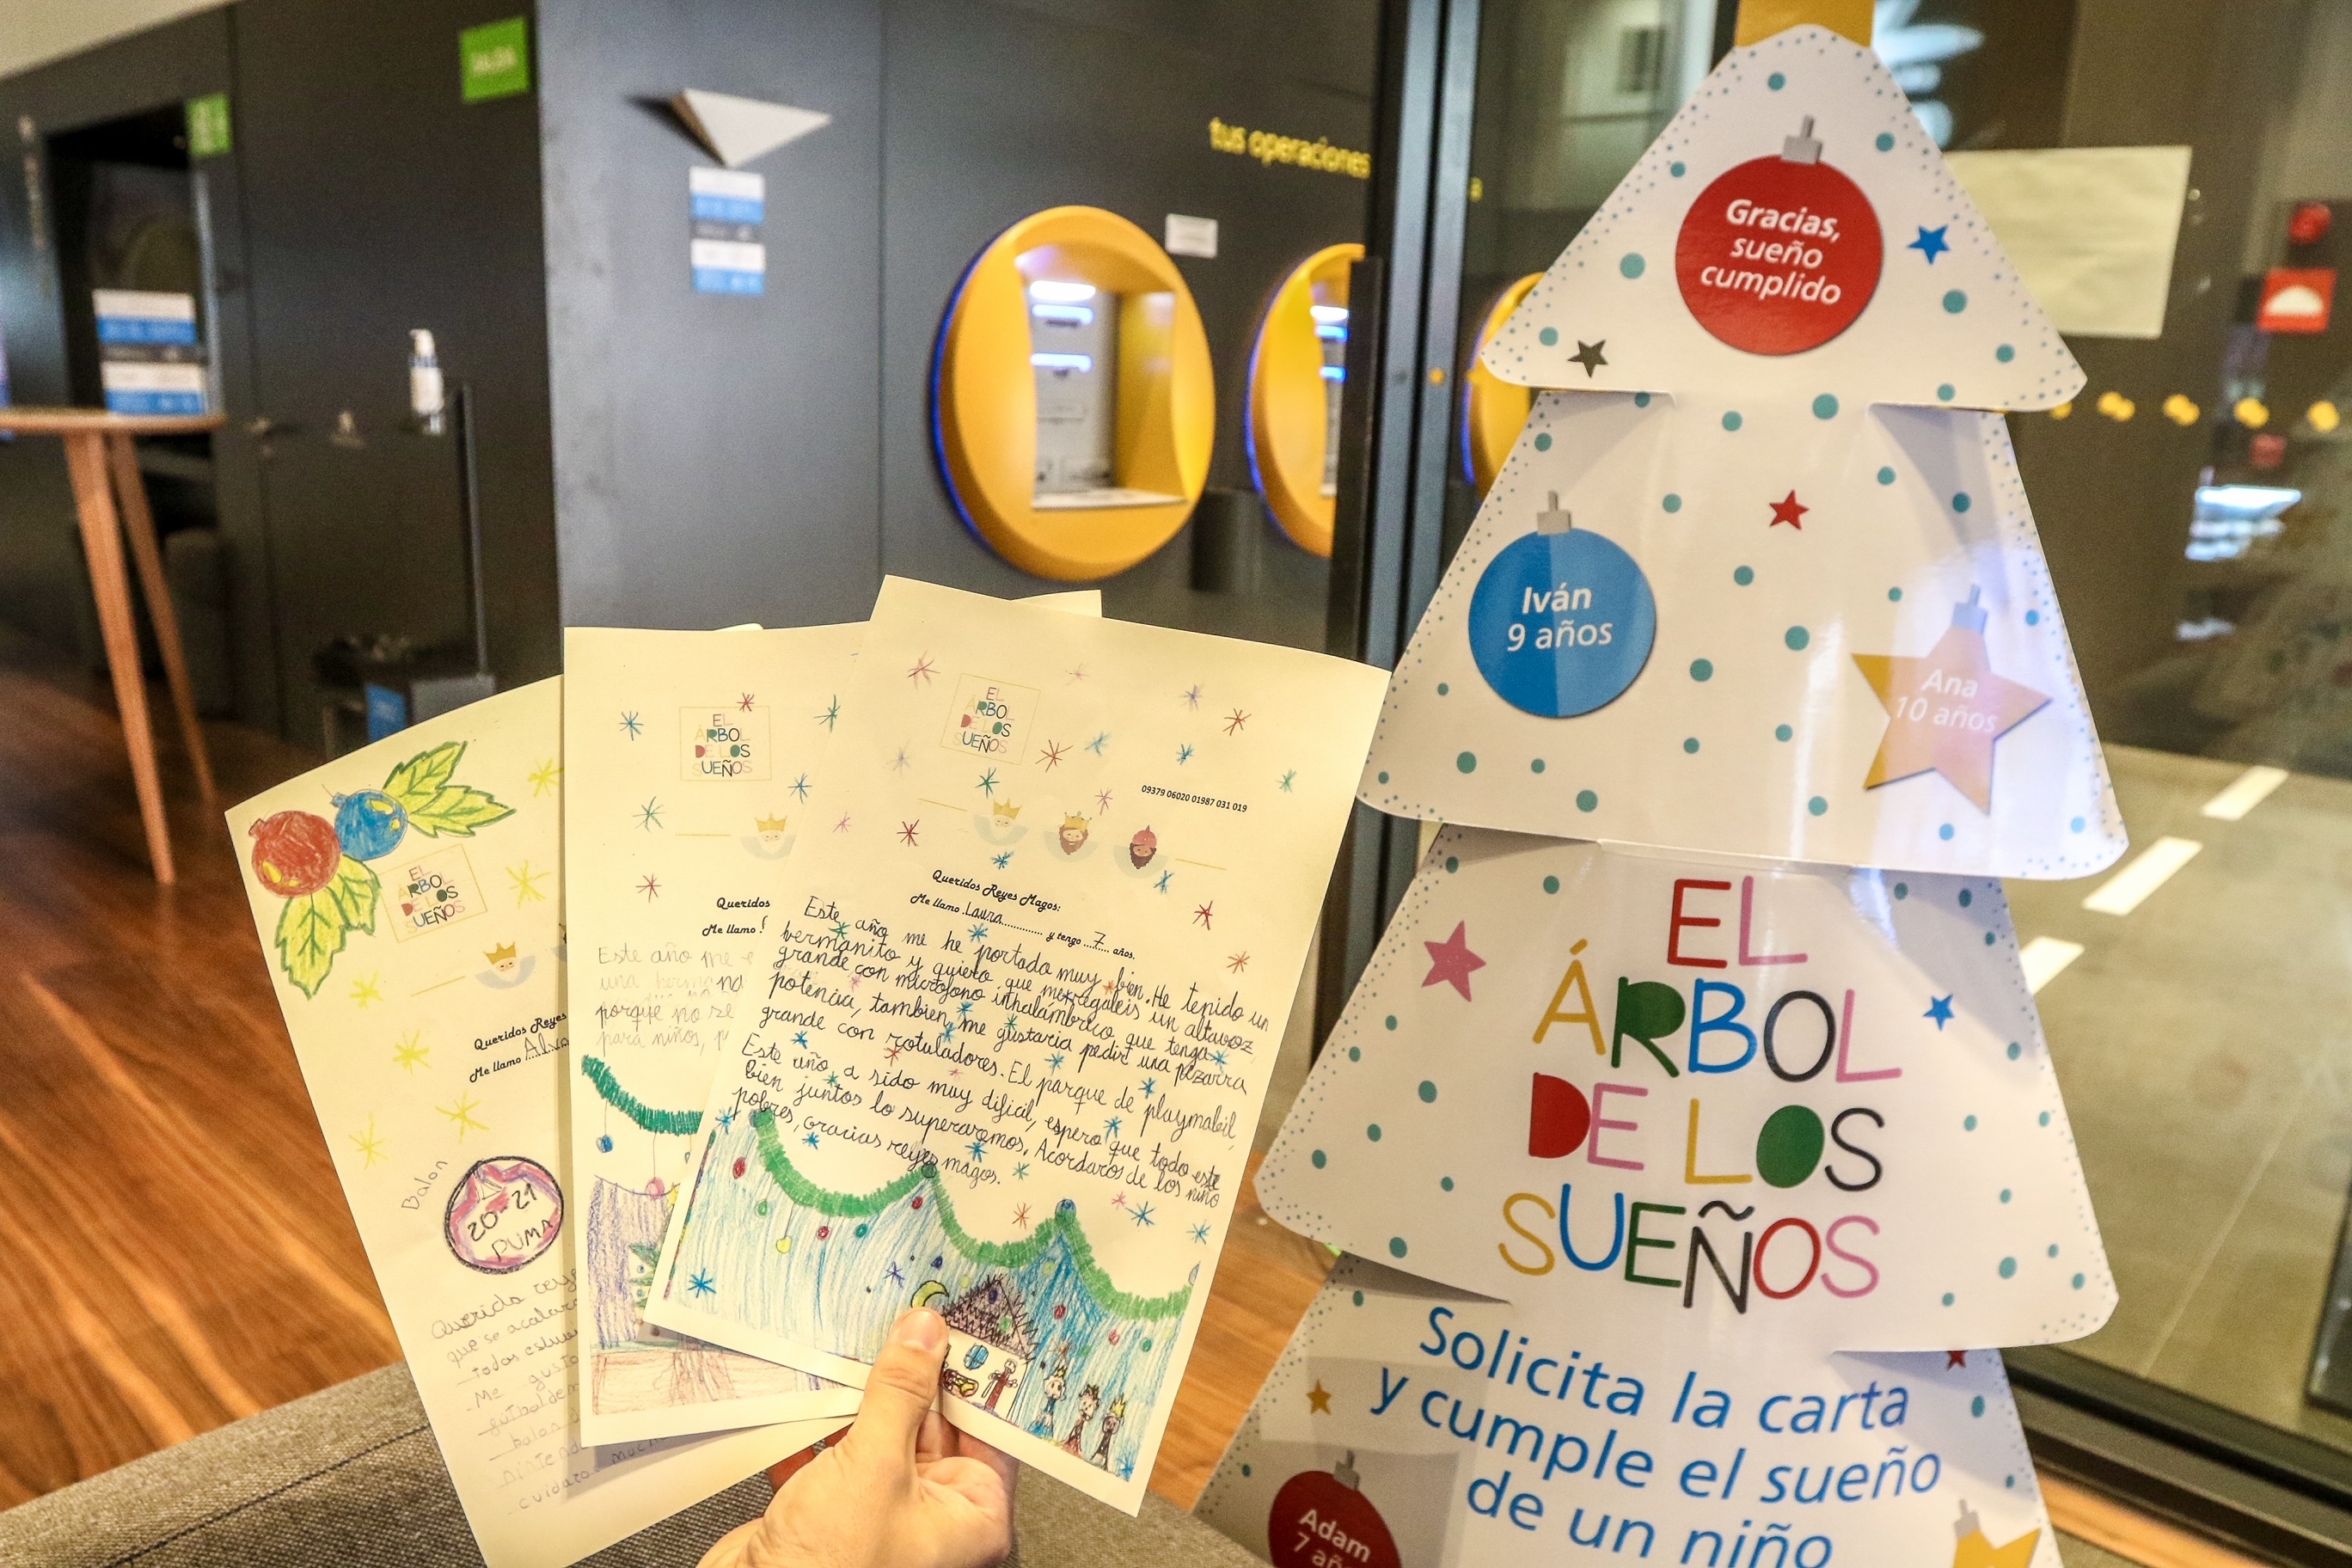 tus operaciones
Gracias,
sueño
cumplido
Iván
9 años
Ana
10 años
EL
ÁRBOL
DE LOS
SUEÑOS
Solicita la carta
y cumple el sueño
de un niño
Adam
7 añ
EL
ÁRBOL
DE LOS
SUEÑOS
09379 06020 01987 031 019
Queridos Reyes Magos:
Me llamo Laura y tengo 7 años.
Este año me he portado muy bien. He tenido un
hermanito y quiero que me regaleis un altavoz
grande con micrófono inhalámbrico que tenga
potencia, tambien me gustaria pedir una pizarra
grande con rotuladores. El parque de playmobil,
Este año a sido muy dificil, espero que todo este
bien juntos lo superaremos. Acordaros de los niño
pobres, gracias reyes magos.
EL
ÁRBOL
DE LOS
SUEÑOS
Queridos
Me llamo
Este año me
una herma
porque no se
para niños, p
EL
ÁRBOL
DE LOS
SUEÑOS
Queridos Reyes
Me llamo Alva
Balon
20-21
PUMA
Querido reye
que se acabara
todos
Me gusta